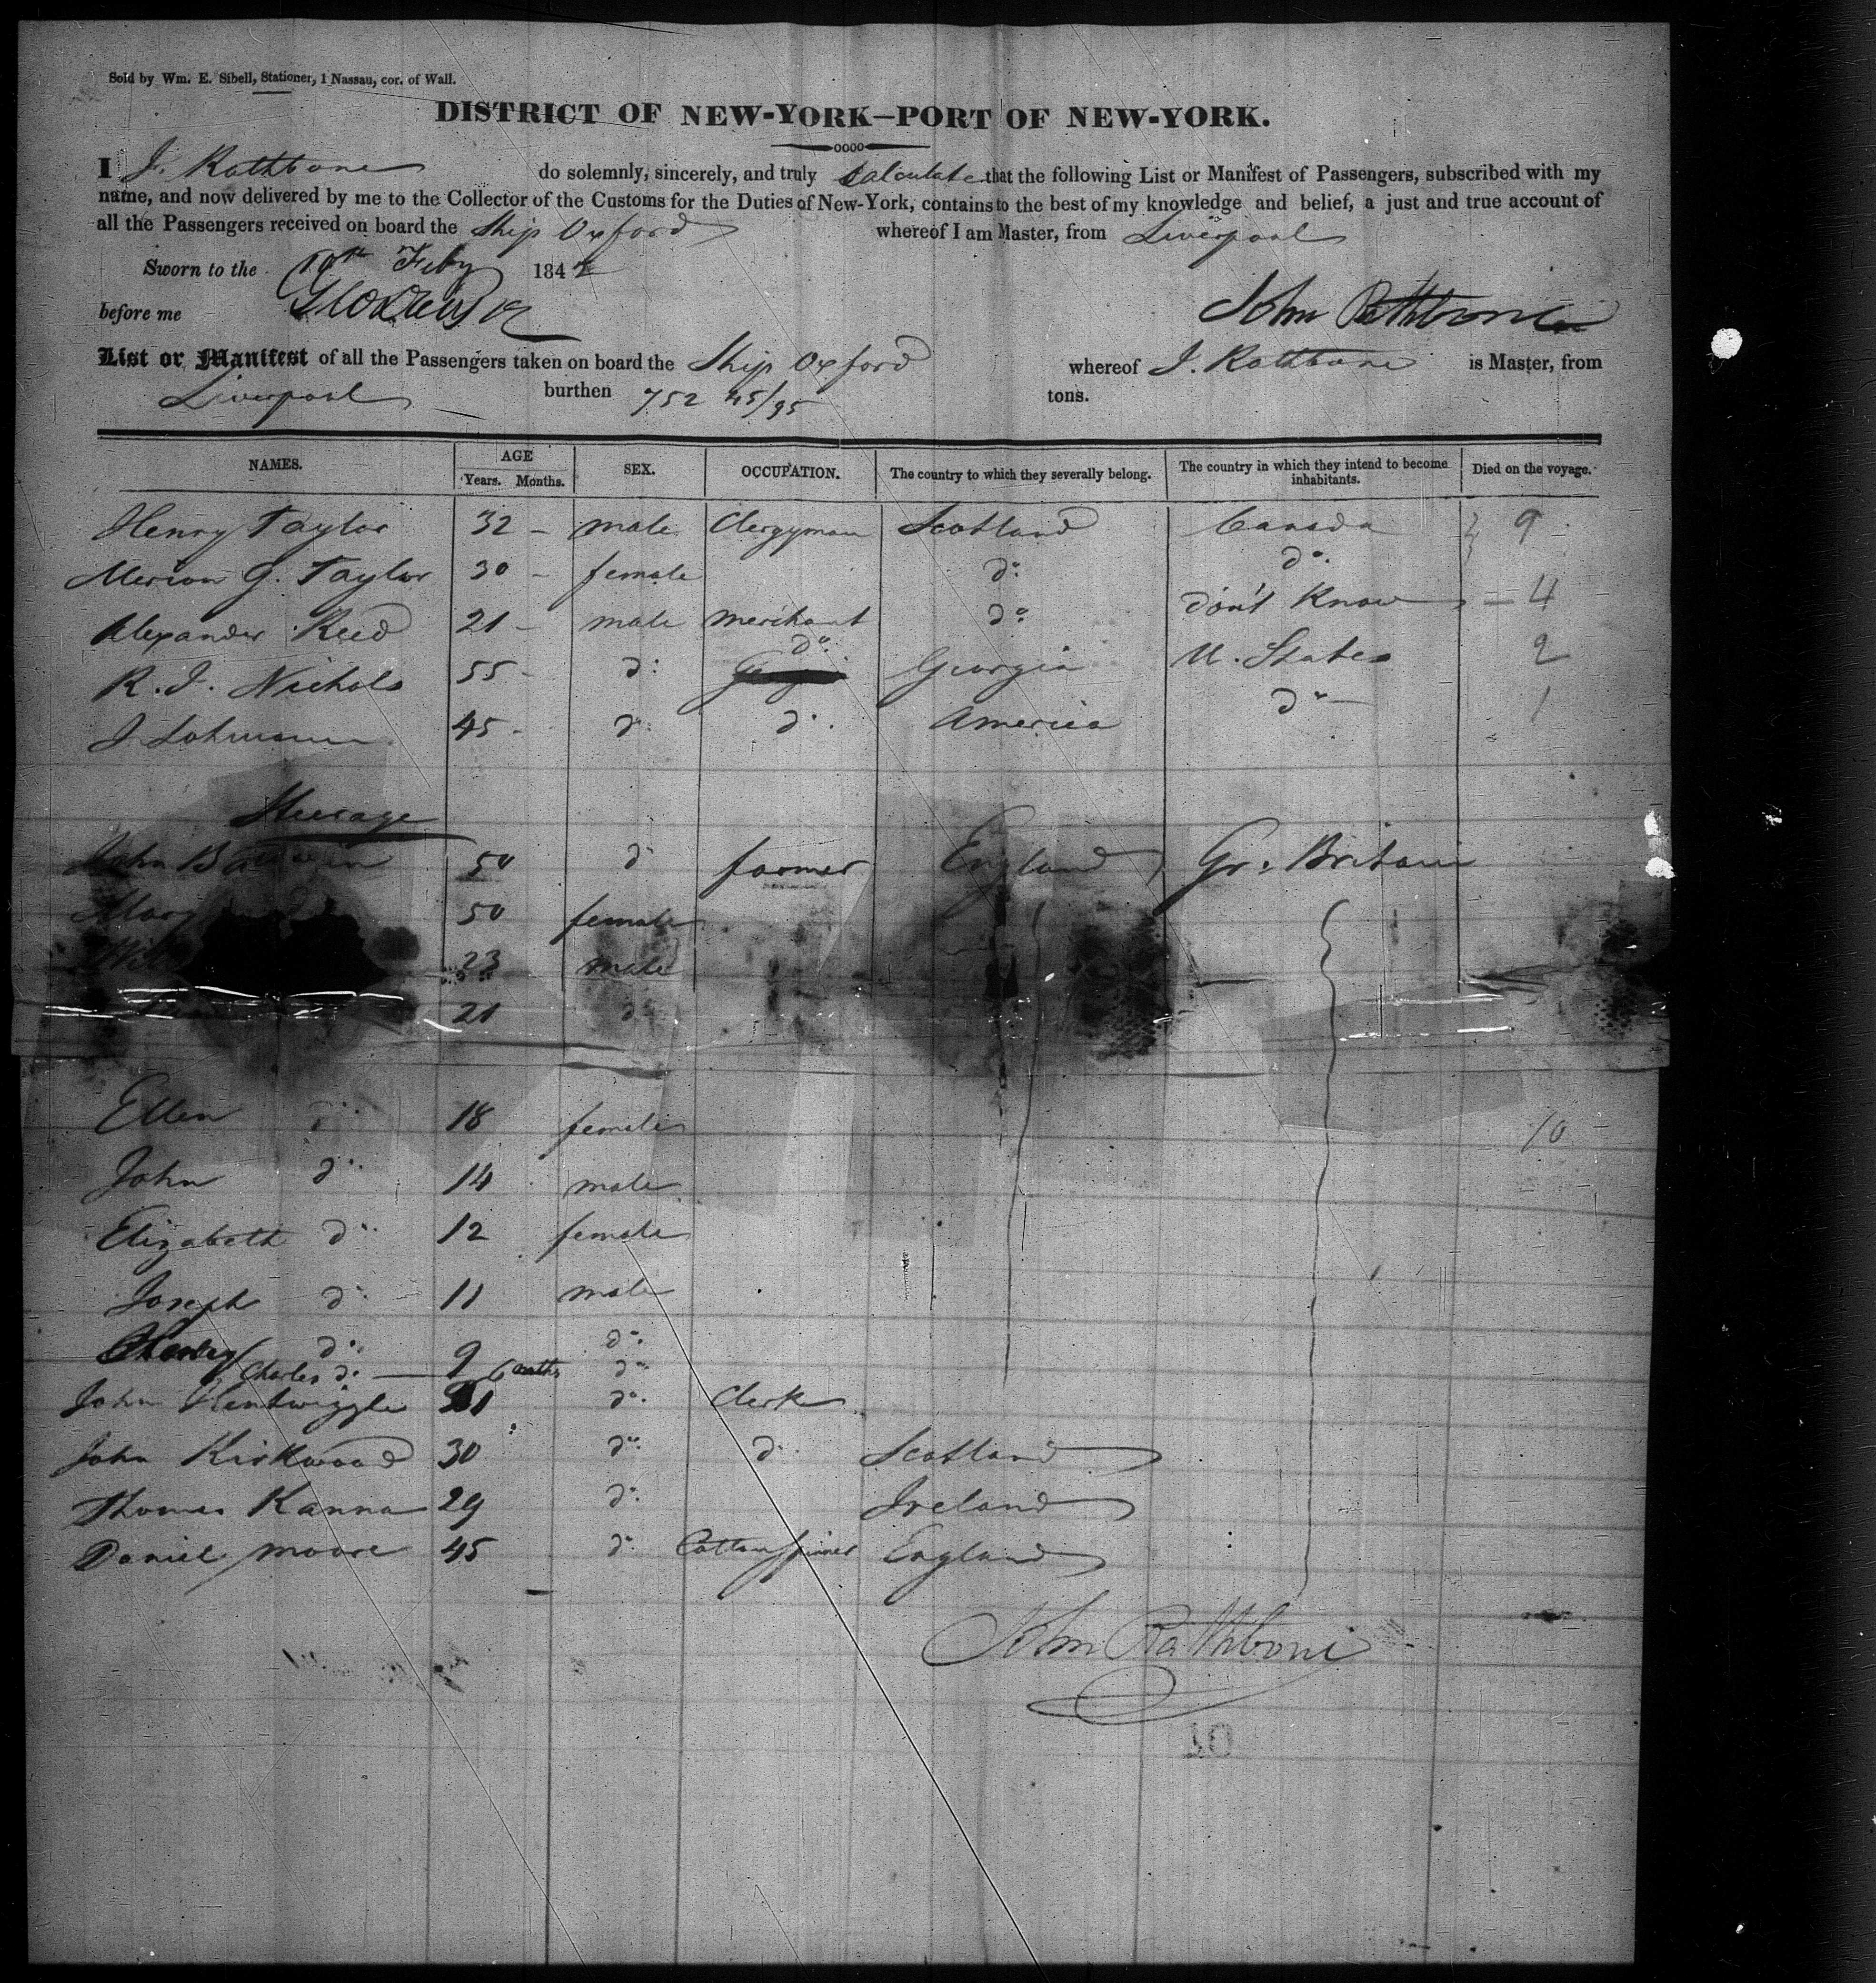 Sold by Wm. E. Sibell, Stationer, 1 Nassau, cor. of Wall.
DISTRICT OF NEW-YORK—PORT OF NEW-YORK.
I J. Rathbone do solemnly, sincerely, and truly that the following List or Manifest of Passengers, subscribed with my
name, and now delivered by me to the Collector of the Customs for the Duties of New-York, contains to the best of my knowledge and belief, a just and true account of
all the Passengers received on board the Ship Oxford whereof I am Master, from Liverpool
Sworn to the 19th Feby 184
before me John Rathbone
List or Manifest of all the Passengers taken on board the Ship Oxford whereof J. Rathbone is Master, from
Liverpool burthen 752 45/95 tons.
NAMES. AGE Years. Months. SEX. OCCUPATION. The country to which they severally belong. The country in which they intend to become inhabitants. Died on the voyage.
Henry Taylor 32 - male Clergyman Scotland Canada 9
Merion G. Taylor 30 - female do do
Alexander Reed 21 - male merchant do don't Know - 4
R. J. Nichols 55 - do do Georgia U. States 2
J. Lohmann 45 - do do America do 1
Steerage
John 50 do farmer England Gr. Britain
Mary 50 female
23 male
21 do
Ellen do 18 female 10
John do 14 male
Elizabeth do 12 female
Joseph do 11 male
do 9 do
Charles do — 6 do
John Hentwiggle do Clerk
John Kirkwood 30 do do Scotland
Thomas Kanna 29 do Ireland
Daniel Moore 45 do Cotton spinner England
John Rathbone